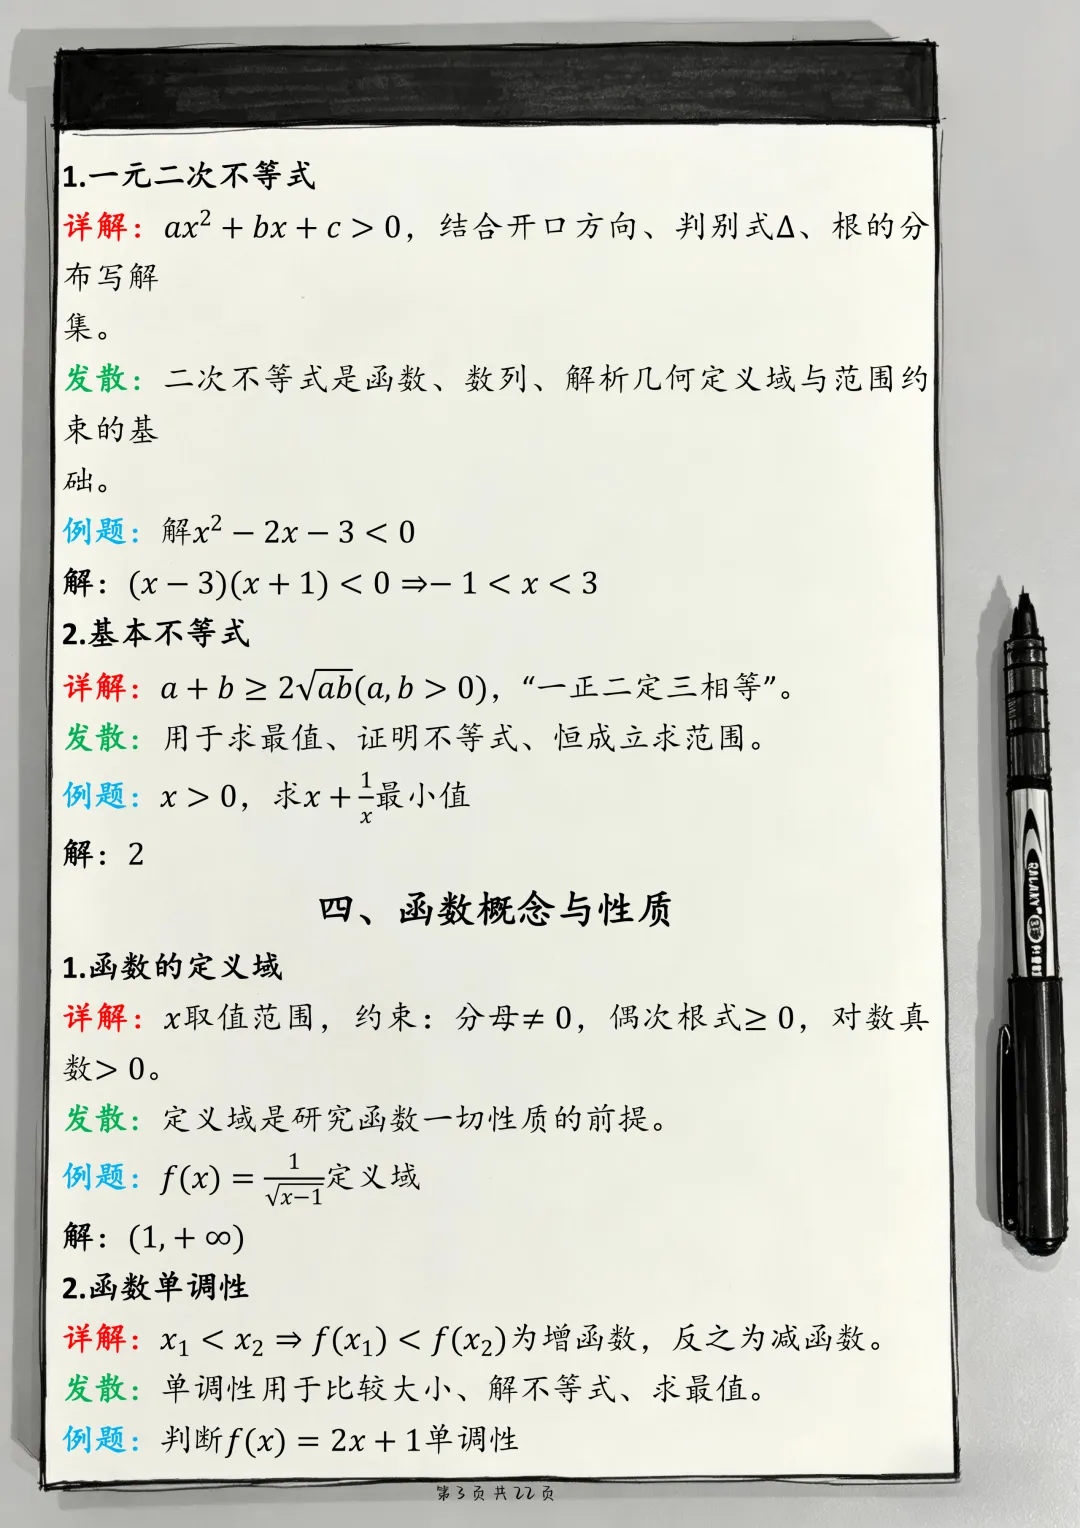 1.一元二次不等式
详解：ax² + bx + c > 0，结合开口方向、判别式Δ、根的分
布写解
集。
发散：二次不等式是函数、数列、解析几何定义域与范围约
束的基
础。
例题：解x² − 2x − 3 < 0
解：(x − 3)(x + 1) < 0 ⇒− 1 < x < 3
2.基本不等式
详解：a + b ≥ 2√ab(a, b > 0)，“一正二定三相等”。
发散：用于求最值、证明不等式、恒成立求范围。
例题：x > 0，求x + 1/x最小值
解：2
四、函数概念与性质
1.函数的定义域
详解：x取值范围，约束：分母≠ 0，偶次根式≥ 0，对数真
数> 0。
发散：定义域是研究函数一切性质的前提。
例题：f(x) = 1/√x−1定义域
解：(1, + ∞)
2.函数单调性
详解：x₁ < x₂ ⇒ f(x₁) < f(x₂)为增函数，反之为减函数。
发散：单调性用于比较大小、解不等式、求最值。
例题：判断f(x) = 2x + 1单调性
第3页共22页